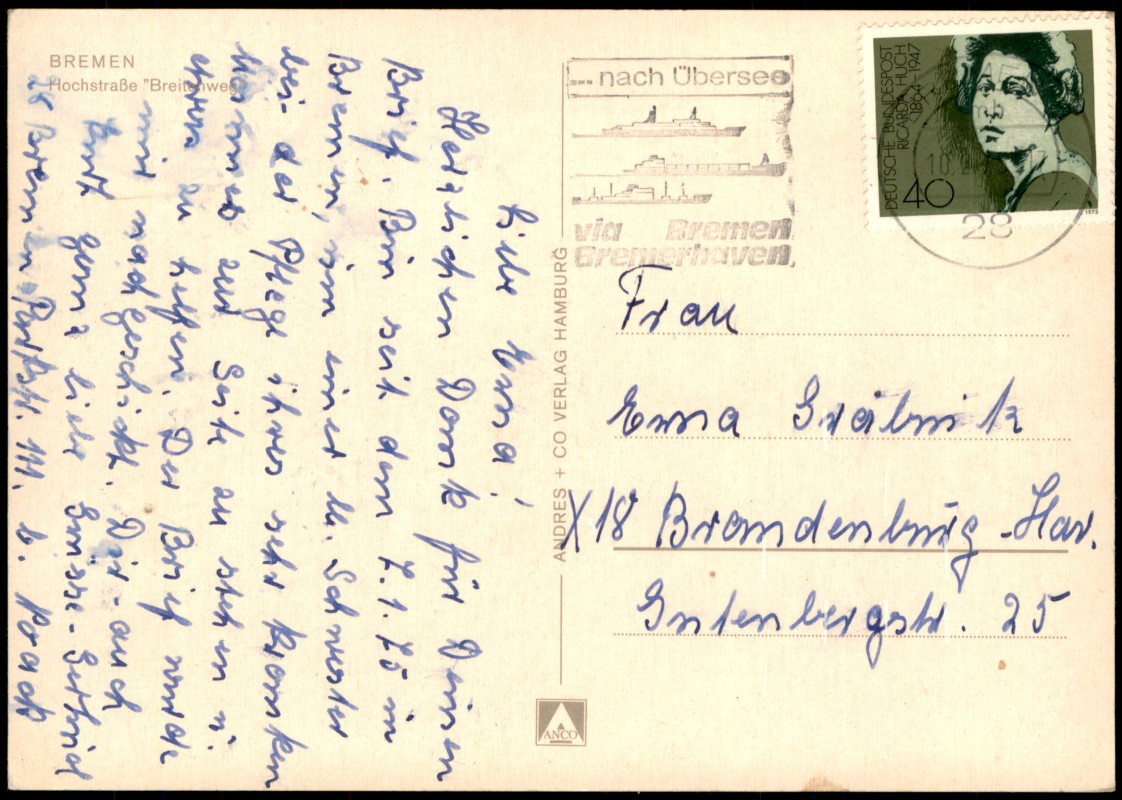 BREMEN
Hochstraße "Breitenweg"
Liebe Erna!
Herzlichen Dank für Deinen
Brief. Bin seit dem 7.1.75 in
Bremen, um einer lb. Schwester
bei der Pflege ihres sehr kranken
Mannes zur Seite zu stehen u.
etwas zu helfen. Der Brief wurde
mir nachgeschickt. Dir - auch
liebe Grüsse - Gertrud
28 Bremen Parkstr. 111. b.
ANDRES + CO VERLAG HAMBURG
ANCO
... nach Übersee
via Bremen
Bremerhaven
DEUTSCHE BUNDESPOST
RICARDA HUCH
1864-1947
40
1975
10.
28
Frau
Erna
X18 Brandenburg-Hav.
Gutenbergstr. 25